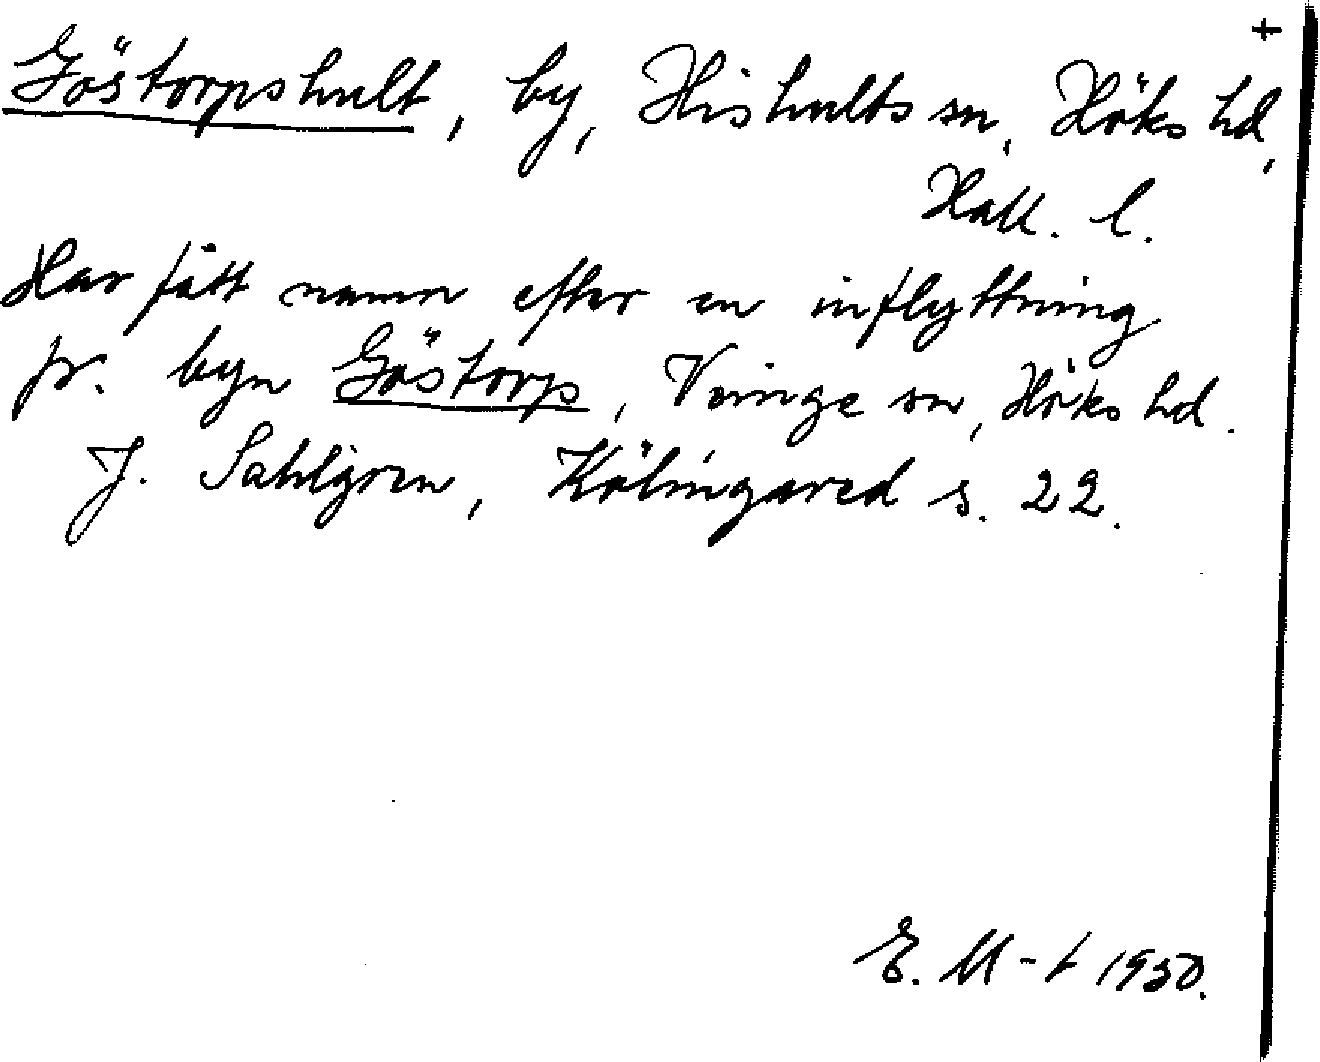 +
Göstorpshult, by, Hishults sn, Höks hd,
Hall. l.
Har fått namn efter en inflyttning
fr. byn Göstorp, Veinge sn, Höks hd.
J. Sahlgren, Kölingared s. 22.
E. M-t 1950.